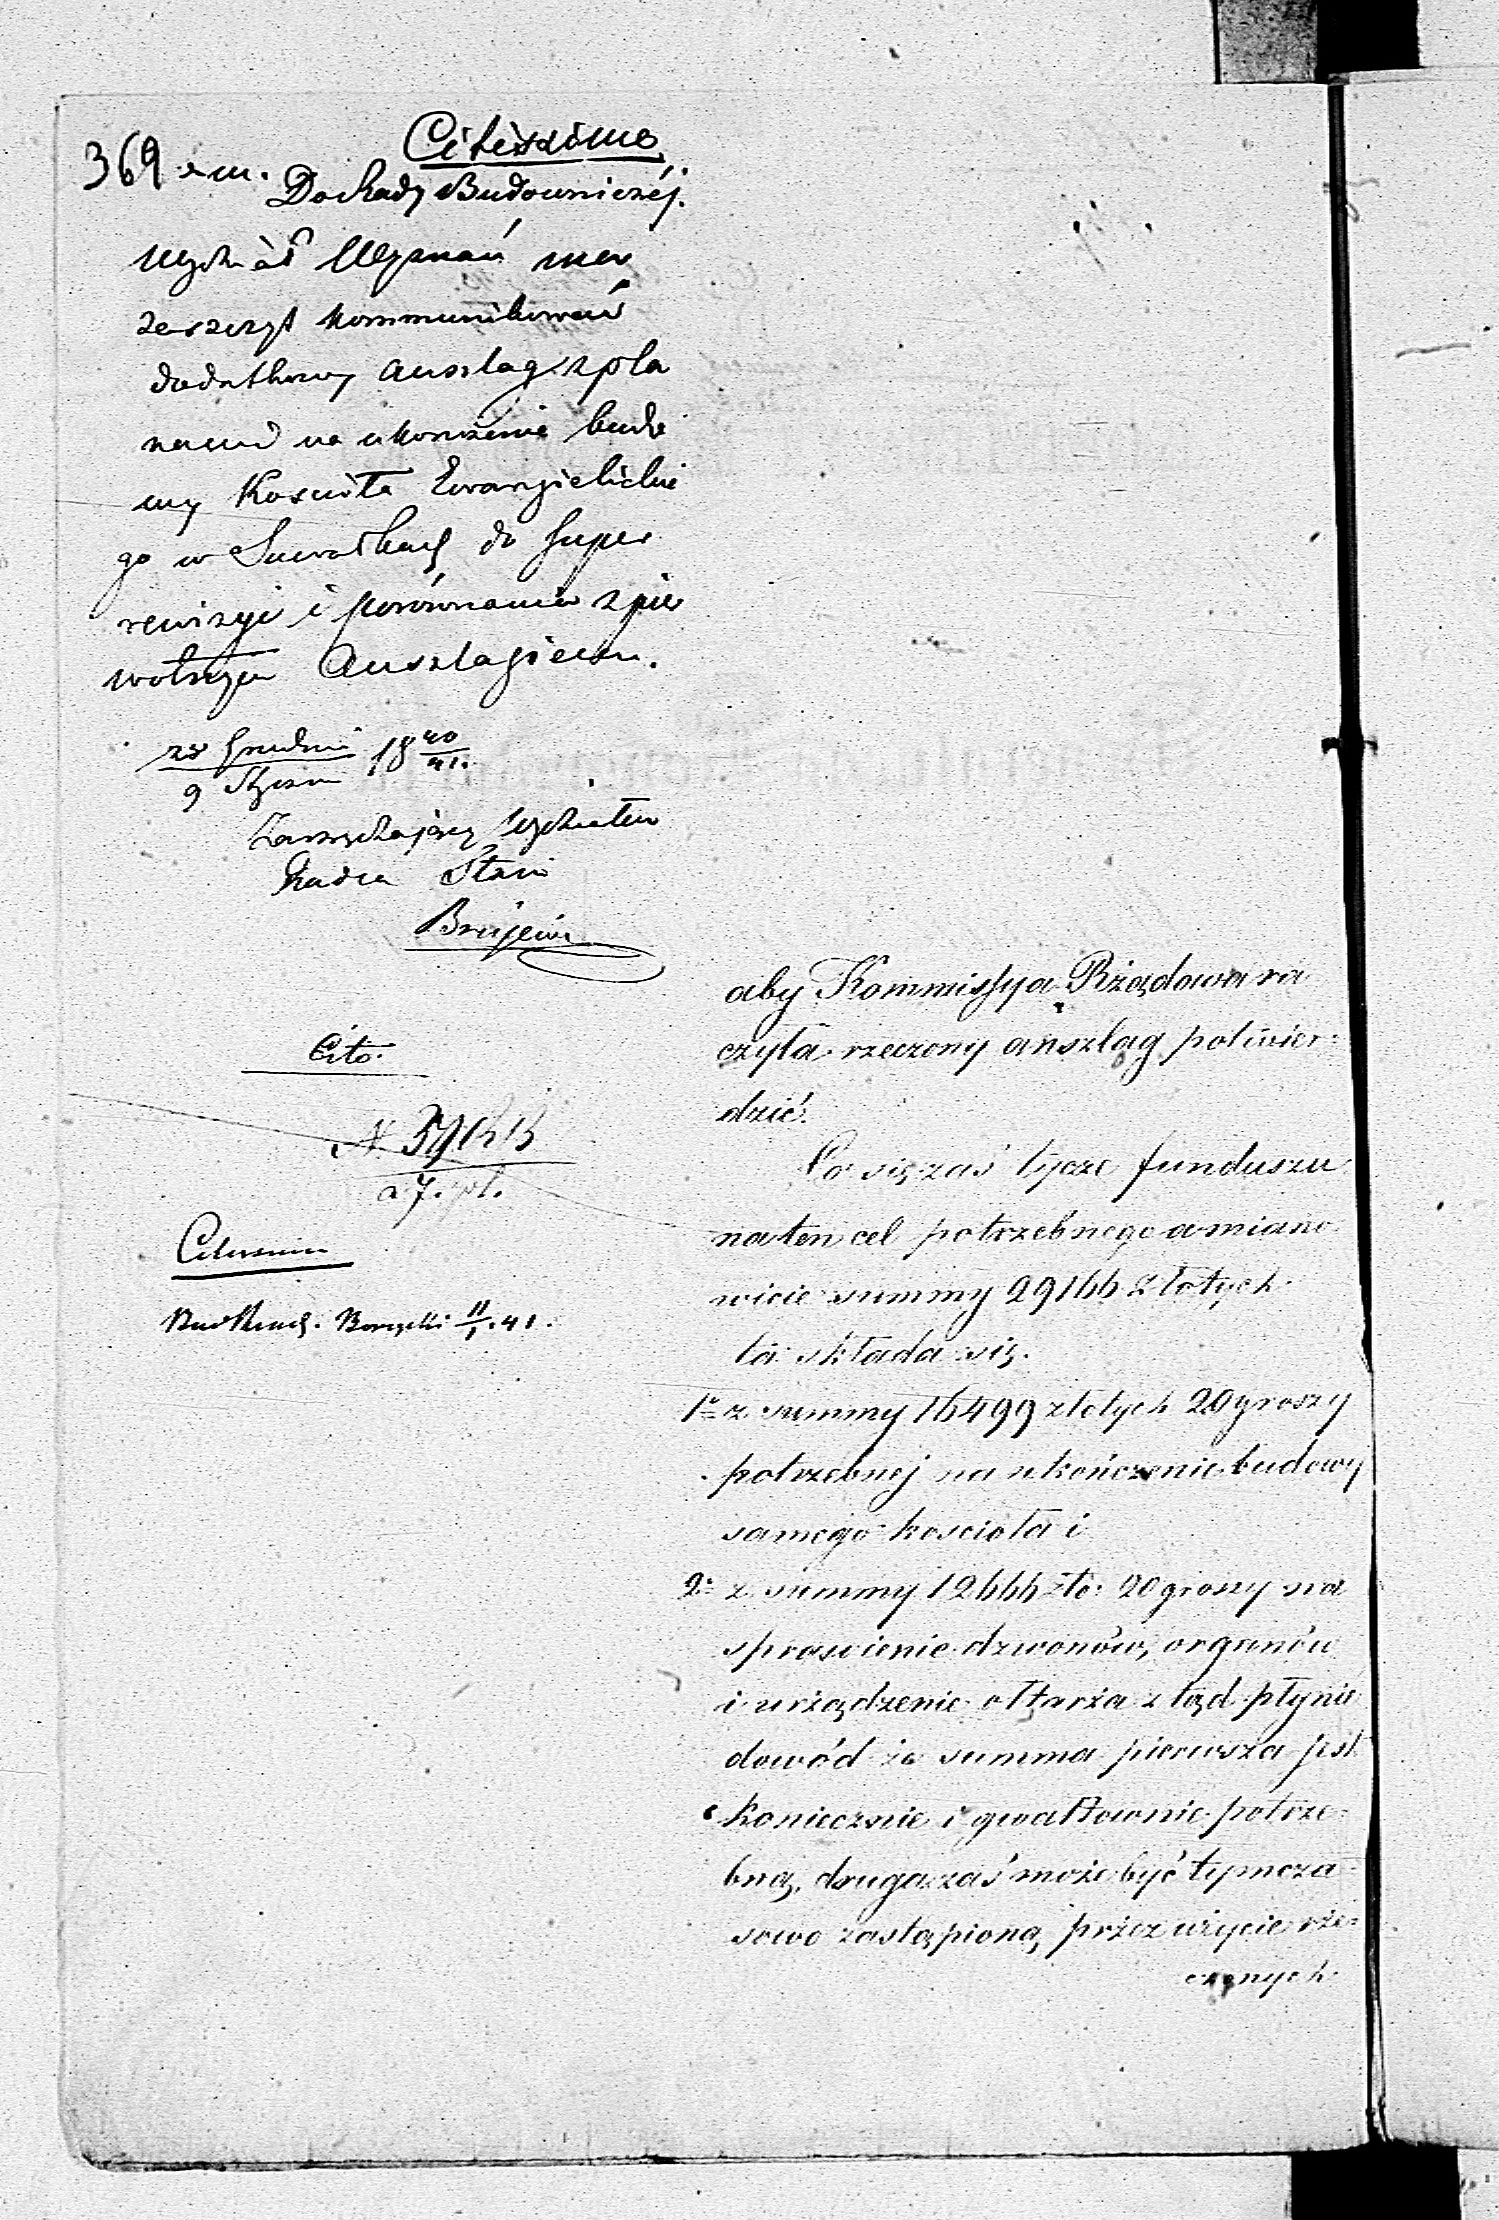 Citissime
369
Do Rady Budowniczéj.
Wydział Wyznań ma
zaszczyt kommunikować
dodatkowy anszlag z pla
nami na ukończenie budo
wy Kościoła Ewangielickie
go w Suwałkach do super
rewizyi i porównania z pier
wotnym Anszlagiem.
28 Grudnia
9 Stycznia 18 40/41.
Zarządzający Wydziałem
Radca Stanu
Cito.
a 7. pl.
Citissime
11/1. 41.
aby Kommissya Rządowa ra
czyła rzeczony anszlag potwier=
dzić.
Co się zaś tycze funduszu
na ten cel potrzebnego a miano
wicie summy 29166 złotych
ta składa się.
1o z summy 16499 złotych 20 groszy
potrzebnej na ukończenie budowy
samego kościoła i
2o z summy 12666 zło: 20 groszy na
sprawienie dzwonów, organów
i urządzenie ołtarza z tąd płynie
dowód że summa pierwsza jest
koniecznie i gwałtownie potrze=
bną, druga zaś może być tymcza
sowo zastąpioną przez użycie rze=
czonych